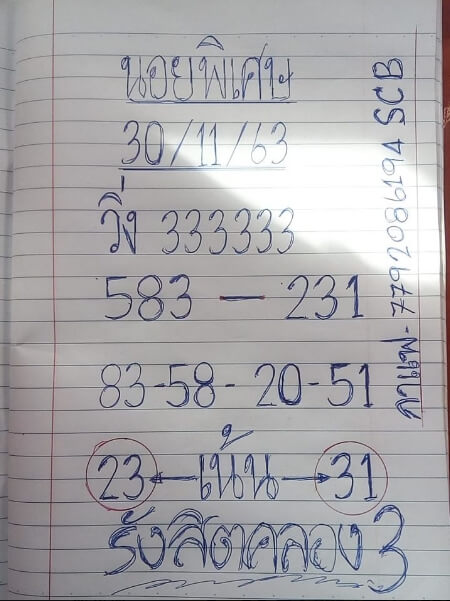 นอยพิเศษ
30/11/63
วิ่ง 333333
583 — 231
83-58-20-51
23 ← เน้น → 31
รังสิตคลอง 3
SCB